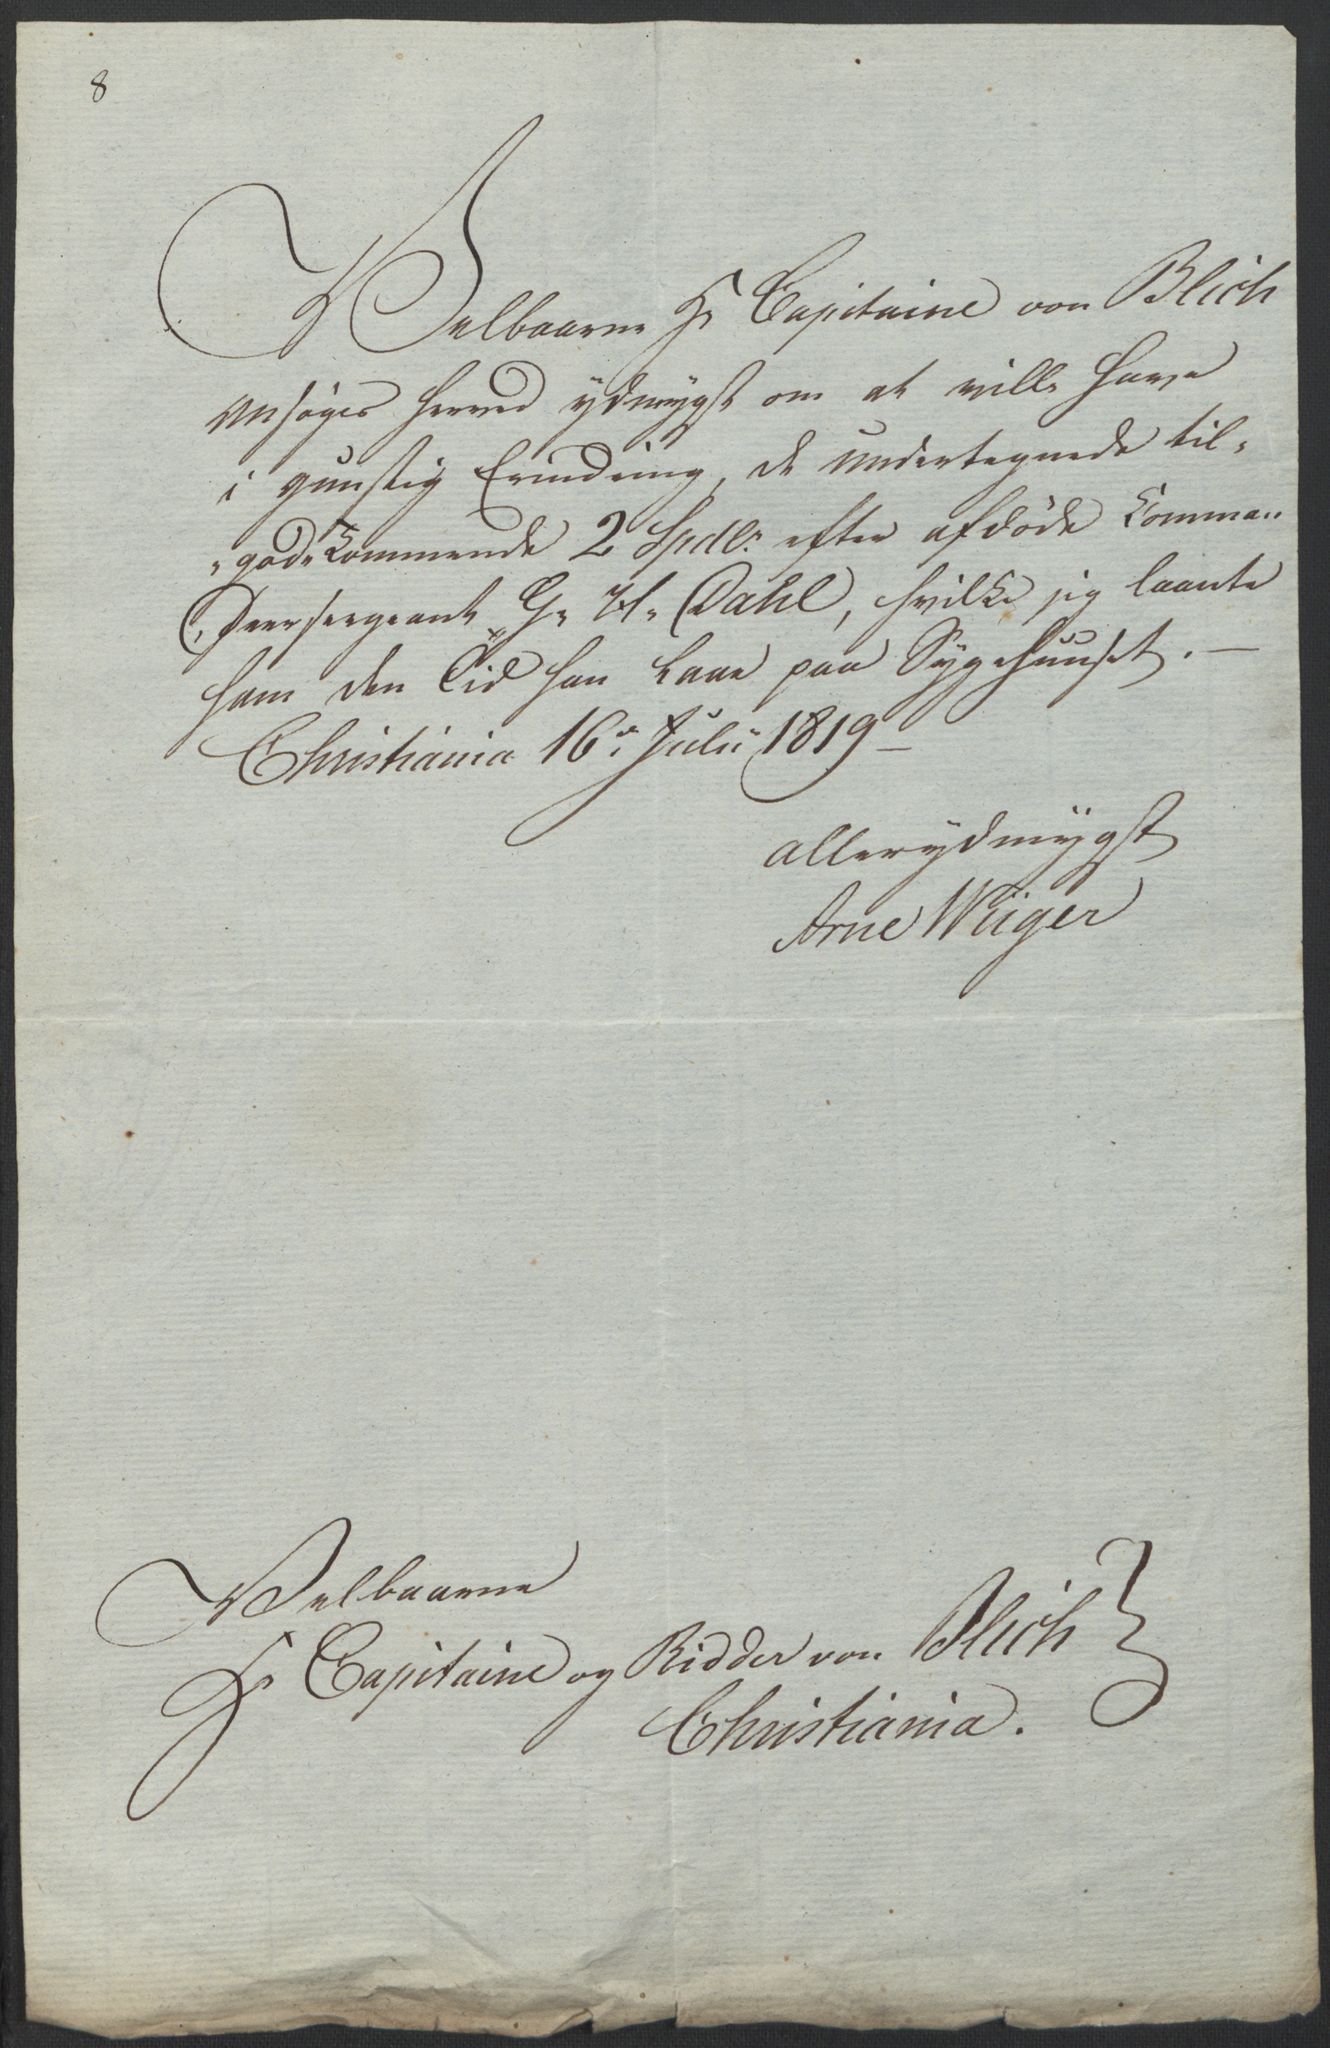 8
Velbaarne Hr Capitaine von Blich
ansøges herved ydmygst om at ville have
i gunstig Erindring, de undertegnede til„
„gode kommende 2 Spdlr. efter afdøde Comman„
„deersergeant G. H. Dahl, hvilke jeg laante
ham den Tid han laae paa Sygehuuset. —
Christiania 16de Julii 1819 —
allerydmygst
Arne Wiiger
Velbaarne
Hr Capitaine og Ridder von Blich }
Christiania.